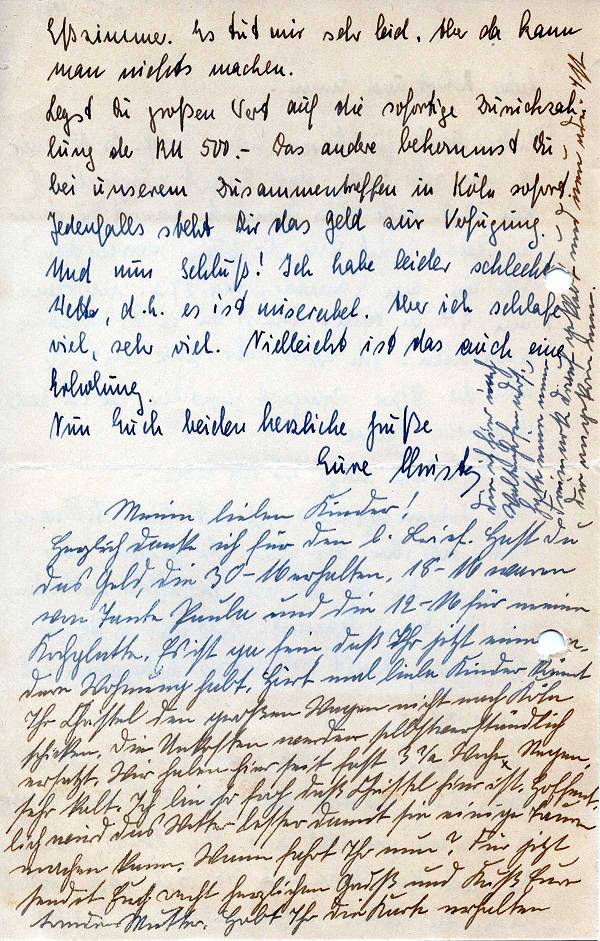 Eßzimmer. Es tut mir sehr leid. Aber da kann
man nichts machen.
Legst Du großen Wert auf die sofortige Zurückzah-
lung der RM 500.- Das andere bekommst Du
bei unserem Zusammentreffen in Köln sofort.
Jedenfalls steht Dir das Geld zur Verfügung.
Und nun Schluß! Ich habe leider schlecht
Wetter, d.h. es ist miserabel. Aber ich schlafe
viel, sehr viel. Vielleicht ist das auch eine
Erholung.
Nun Euch beiden herzliche Grüße
Eure Christel
Meine lieben Kinder!
Herzlich danke ich für den l. Brief. Hast Du
das Geld, die 30-M erhalten. 18-M waren
von Tante Paula und die 12-M für meine
Kochplatte. Es ist ja fein, daß Ihr jetzt eine an-
dere Wohnung habt. Hört mal liebe Kinder könnt
Ihr Christel den großen Wagen nicht nach Köln
schicken. Die Unkosten werden selbstverständlich
ersetzt. Wir haben hier seit fast 3 Woche Regen,
sehr kalt. Ich bin so froh daß Christel hier ist. Hoffent-
lich wird das Wetter besser damit sie einige Touren
machen kann. Wann fahrt Ihr nun? Für jetzt
sendet Euch recht herzlichen Gruß und Kuß Eure
Mutter. Habt Ihr die Karte erhalten
die ich hier nach